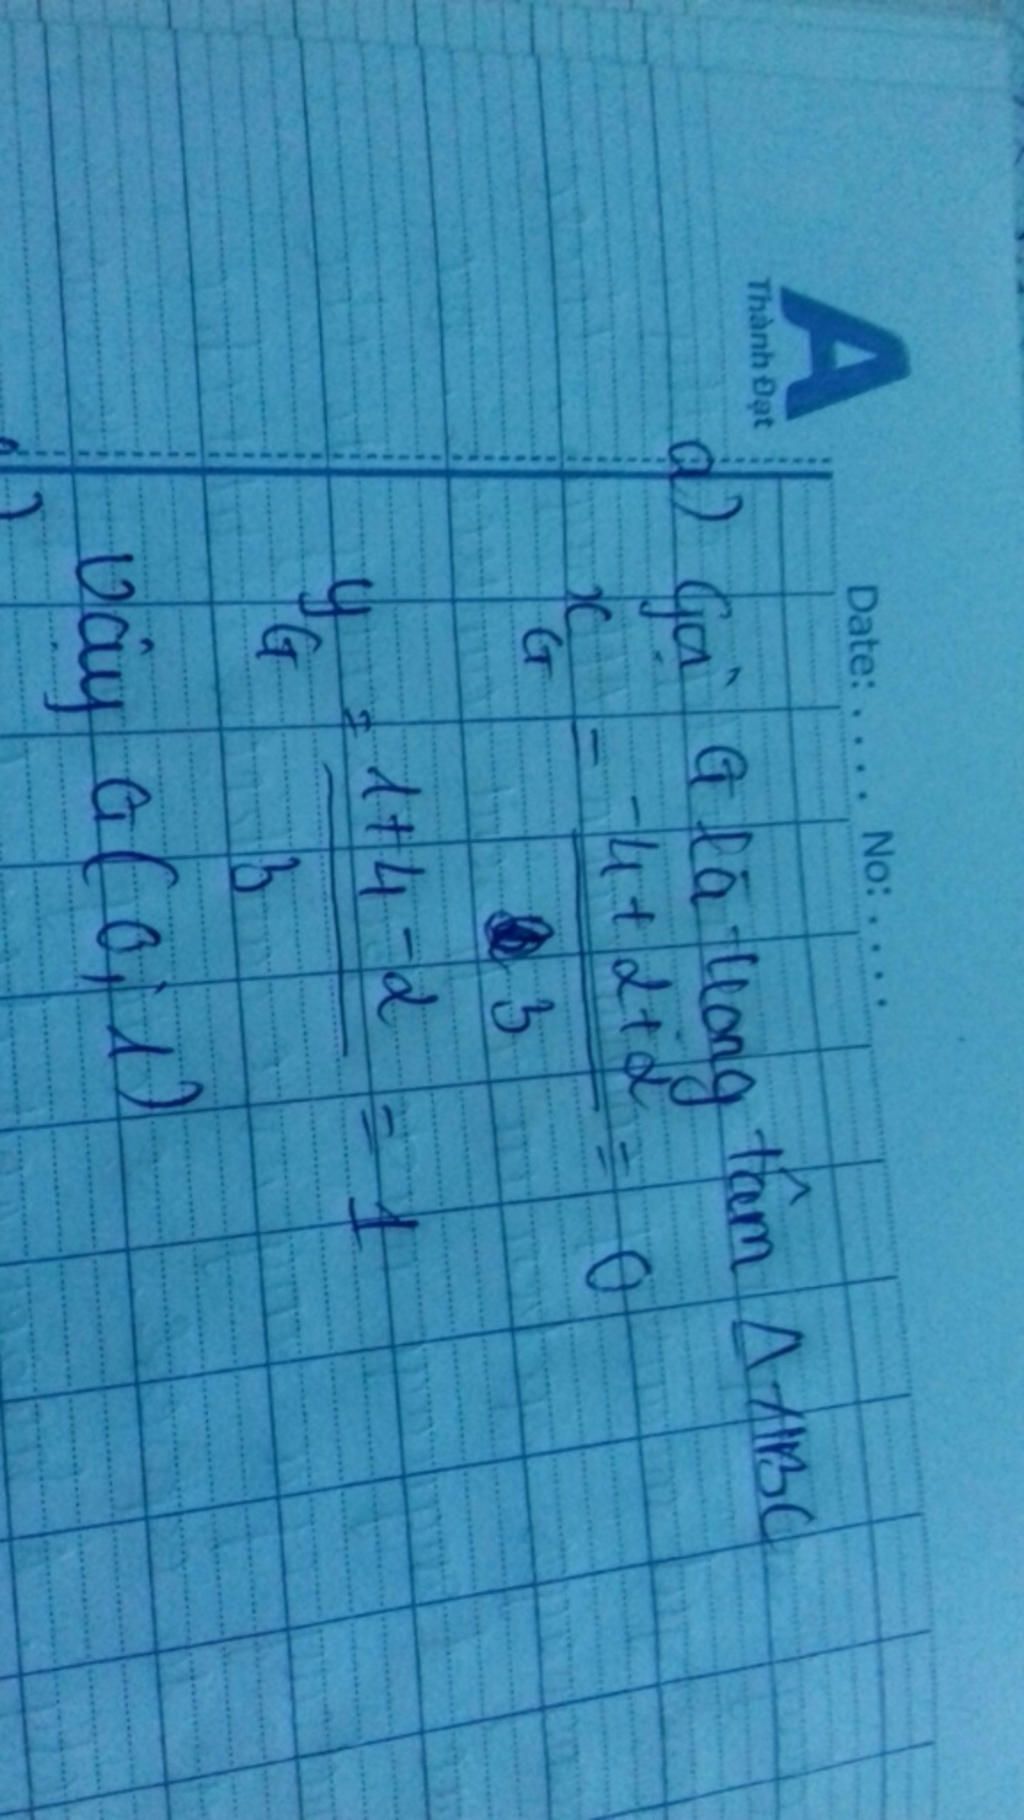 A
Thành Đạt
Date: ..... No: .....
a) Gọi G là trong tâm Δ ABC
x_G = -4+2+2 / 3 = 0
y_G = 1+4-2 / 3 = 1
Vậy G(0; 1)